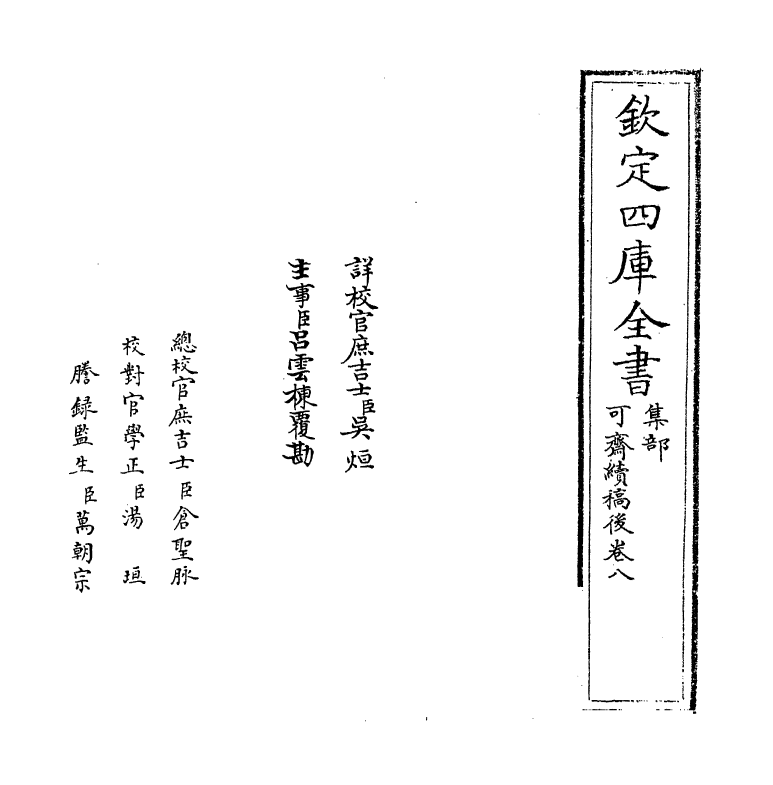 欽定四庫全書
集部
可齋續稿後卷八
詳校官庶吉士臣吳烜
主事臣呂雲棟覆勘
總校官庶吉士臣倉聖脉
校對官學正臣湯垣
謄録監生臣萬朝宗